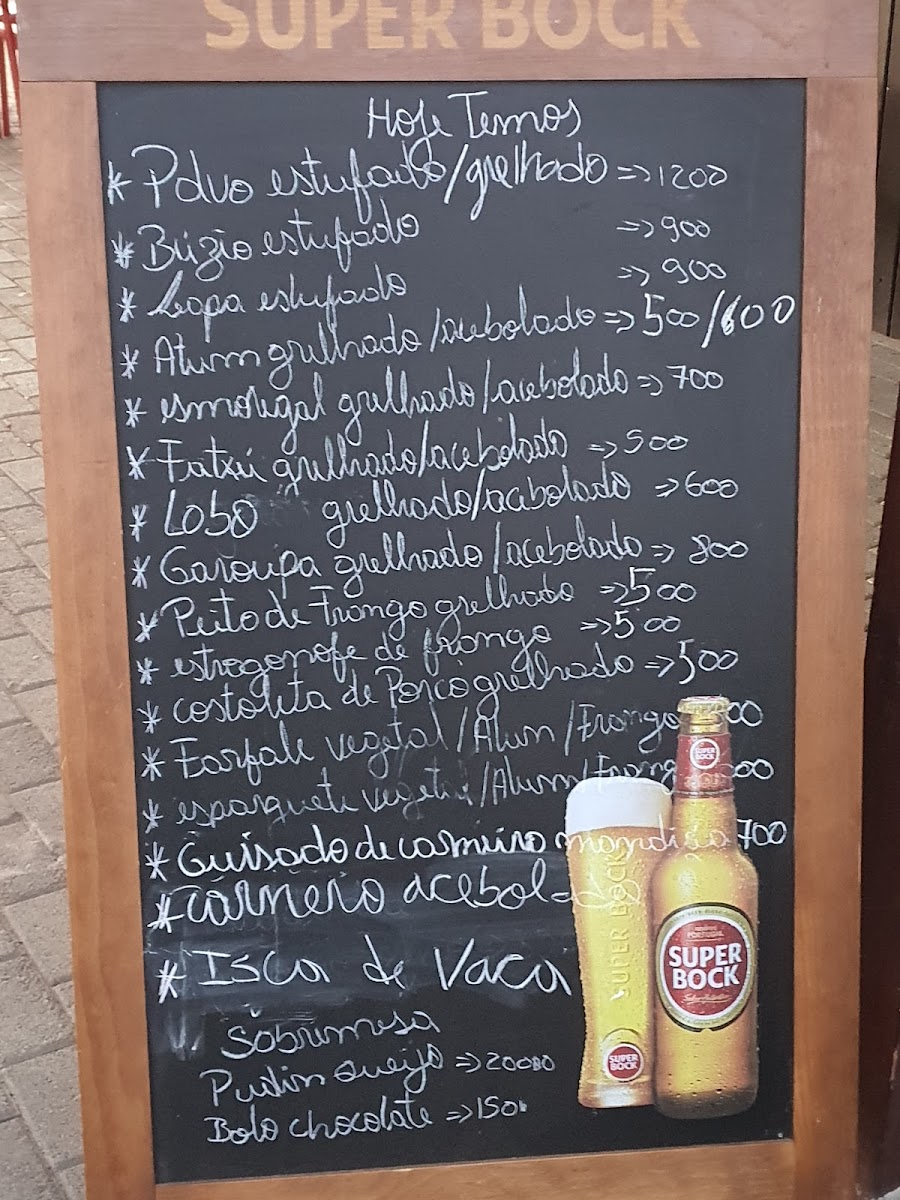 SUPER BOCK
Hoje Temos
* Polvo estufado/grelhado => 1200
* Búzio estufado => 900
* Lapa estufado => 900
* Atum grelhado/acebolado => 500/600
* esmoregal grelhado/acebolado => 700
* Fatxú grelhado/acebolado => 500
* Lobo grelhado/acebolado => 600
* Garoupa grelhado/acebolado => 800
* Peito de Frango grelhado => 500
* estrogonofe de frango => 500
* costoleta de Porco grelhado => 500
* Farfale vegetal/Atum/Frango 00
* esparguete vegetal/Atum/Frang 00
* Guisado de carneiro mandioca 700
* carneiro acebolado
* Isca de Vaca
Sobremesa
Pudim queijo => 200
Bolo chocolate => 150
SUPER BOCK
SUPER BOCK
SUPER BOCK
PORTUGAL
SUPER BOCK